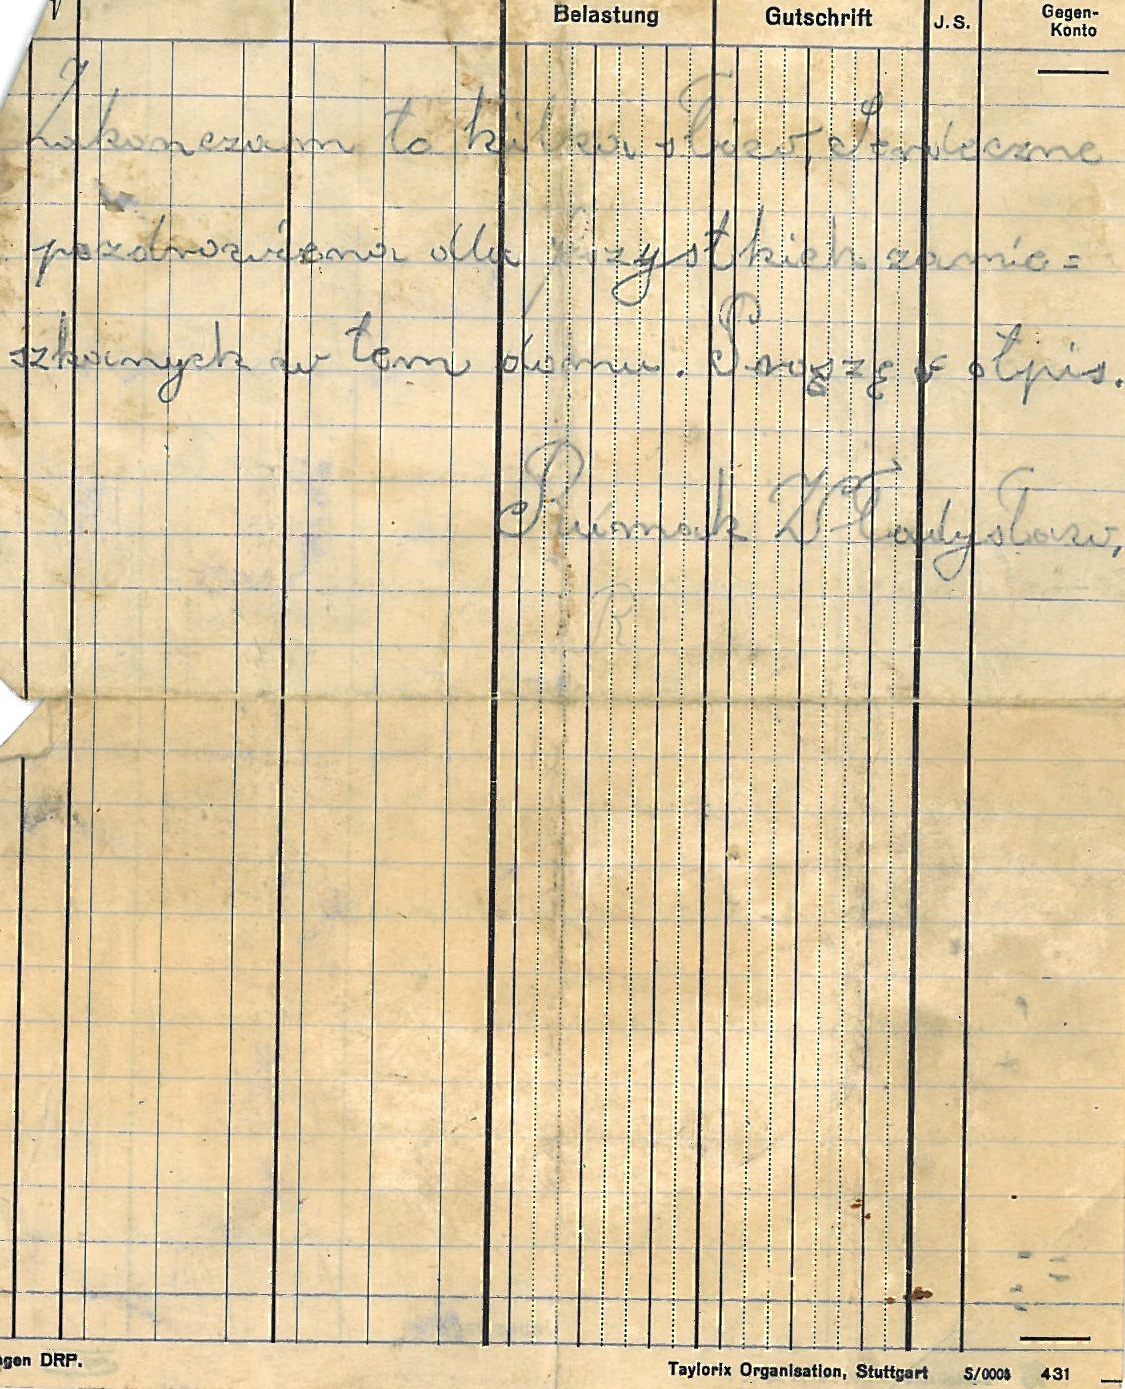 Belastung Gutschrift J.S. Gegen-
Konto
Zakonczam to kilka słów, Serdeczne
pozdrowiena dla wszystkich zamie=
szkanych w tem domu. Proszę o otpis.
Władysław,
gen DRP.
Taylorix Organisation, Stuttgart S/0008 431